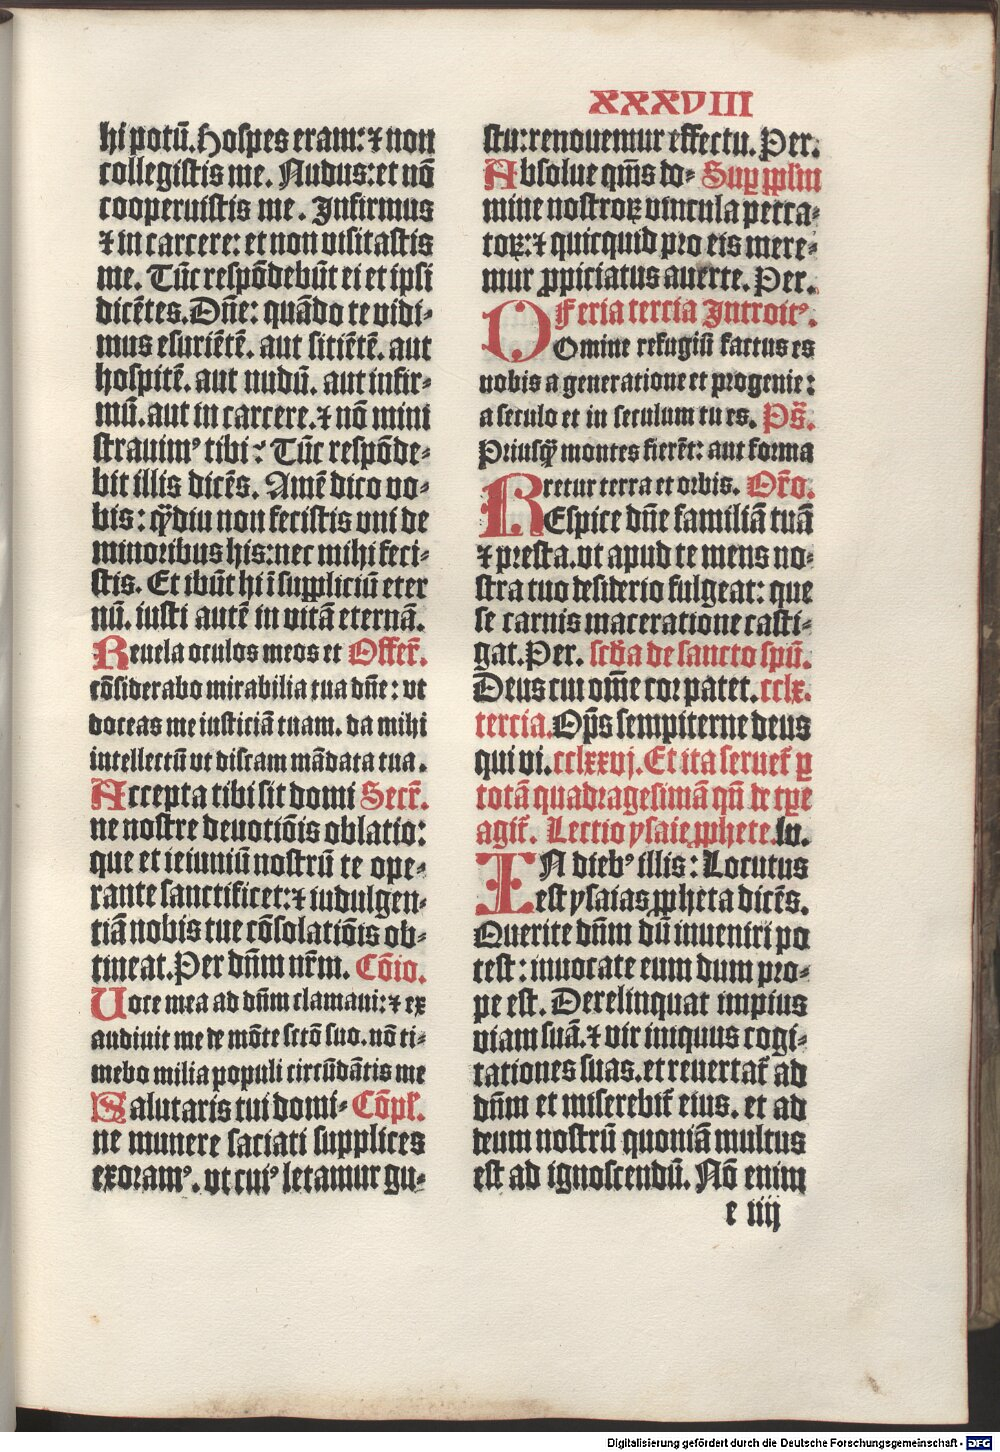 XXXVIII
hi potū. Hospes eram: ⁊ non
collegistis me. Nudus: et nō
cooperuistis me. Infirmus
⁊ in carcere: et non visitastis
me. Tūc respōdebūt ei et ipsi
dicētes. Dn̄e: quādo te vidi-
mus esuriētē. aut sitiētē. aut
hospitē. aut nudū. aut infir-
mū. aut in carcere. ⁊ nō mini
strauimꝰ tibi? Tūc respōde-
bit illis dicēs. Amē dico vo-
bis: qͣ̄diu non fecistis vni de
minoribus his: nec mihi feci-
stis. Et ibūt hi ī suppliciū eter
nū. iusti autē in vitā eternā.
Reuela oculos meos et Offer̄.
cōsiderabo mirabilia tua dn̄e: vt
doceas me iusticiā tuam. da mihi
intellectū vt discam mādata tua.
Accepta tibi sit domi Secr̄.
ne nostre deuotiōis oblatio:
que et ieiuniū nostrū te ope-
rante sanctificet: ⁊ indulgen-
tiā nobis tue cōsolatiōis ob-
tineat. Per dn̄m nr̄m. Cōio.
Uoce mea ad dn̄m clamaui: ⁊ ex
audiuit me de mōte sctō suo. nō ti-
mebo milia populi circūdātis me
Salutaris tui domi- Cōpl̄.
ne munere saciati supplices
exoramꝰ. vt cuiꝰ letamur gu-
stu: renouemur effectu. Per.
Absolue qm̄s do- Suꝑ pplm
mine nostroꝝ vincula pecca-
toꝝ: ⁊ quicquid pro eis mere-
mur ꝓpiciatus auerte. Per.
Feria tercia Introitꝰ.
Domine refugiū factus es
nobis a generatione et progenie:
a seculo et in seculum tu es. Ps̄.
Priusqͣ̄ montes fierēt: aut forma
retur terra et orbis. Or̄o.
REspice dn̄e familiā tuā
⁊ presta. vt apud te mens no-
stra tuo desiderio fulgeat: que
se carnis maceratione casti-
gat. Per. scd̄a de sancto spū.
Deus cui om̄e cor patet. cclx.
tercia. Op̄s sempiterne deus
qui vi. cclxxvj. Et ita seruet̄ ꝑ
totā quadragesimā qn̄ de tꝑe
agit̄. Lectio ysaie ꝓphete. lv.
IN diebꝰ illis: Locutus
est ysaias ꝓpheta dicēs.
Querite dn̄m dū inueniri po
test: inuocate eum dum pro-
pe est. Derelinquat impius
viam suā. ⁊ vir iniquus cogi-
tationes suas. et reuertat̄ ad
dn̄m et miserebit̄ eius. et ad
deum nostrū quoniā multus
est ad ignoscendū. Nō enim
e iiij
Digitalisierung gefördert durch die Deutsche Forschungsgemeinschaft - DFG